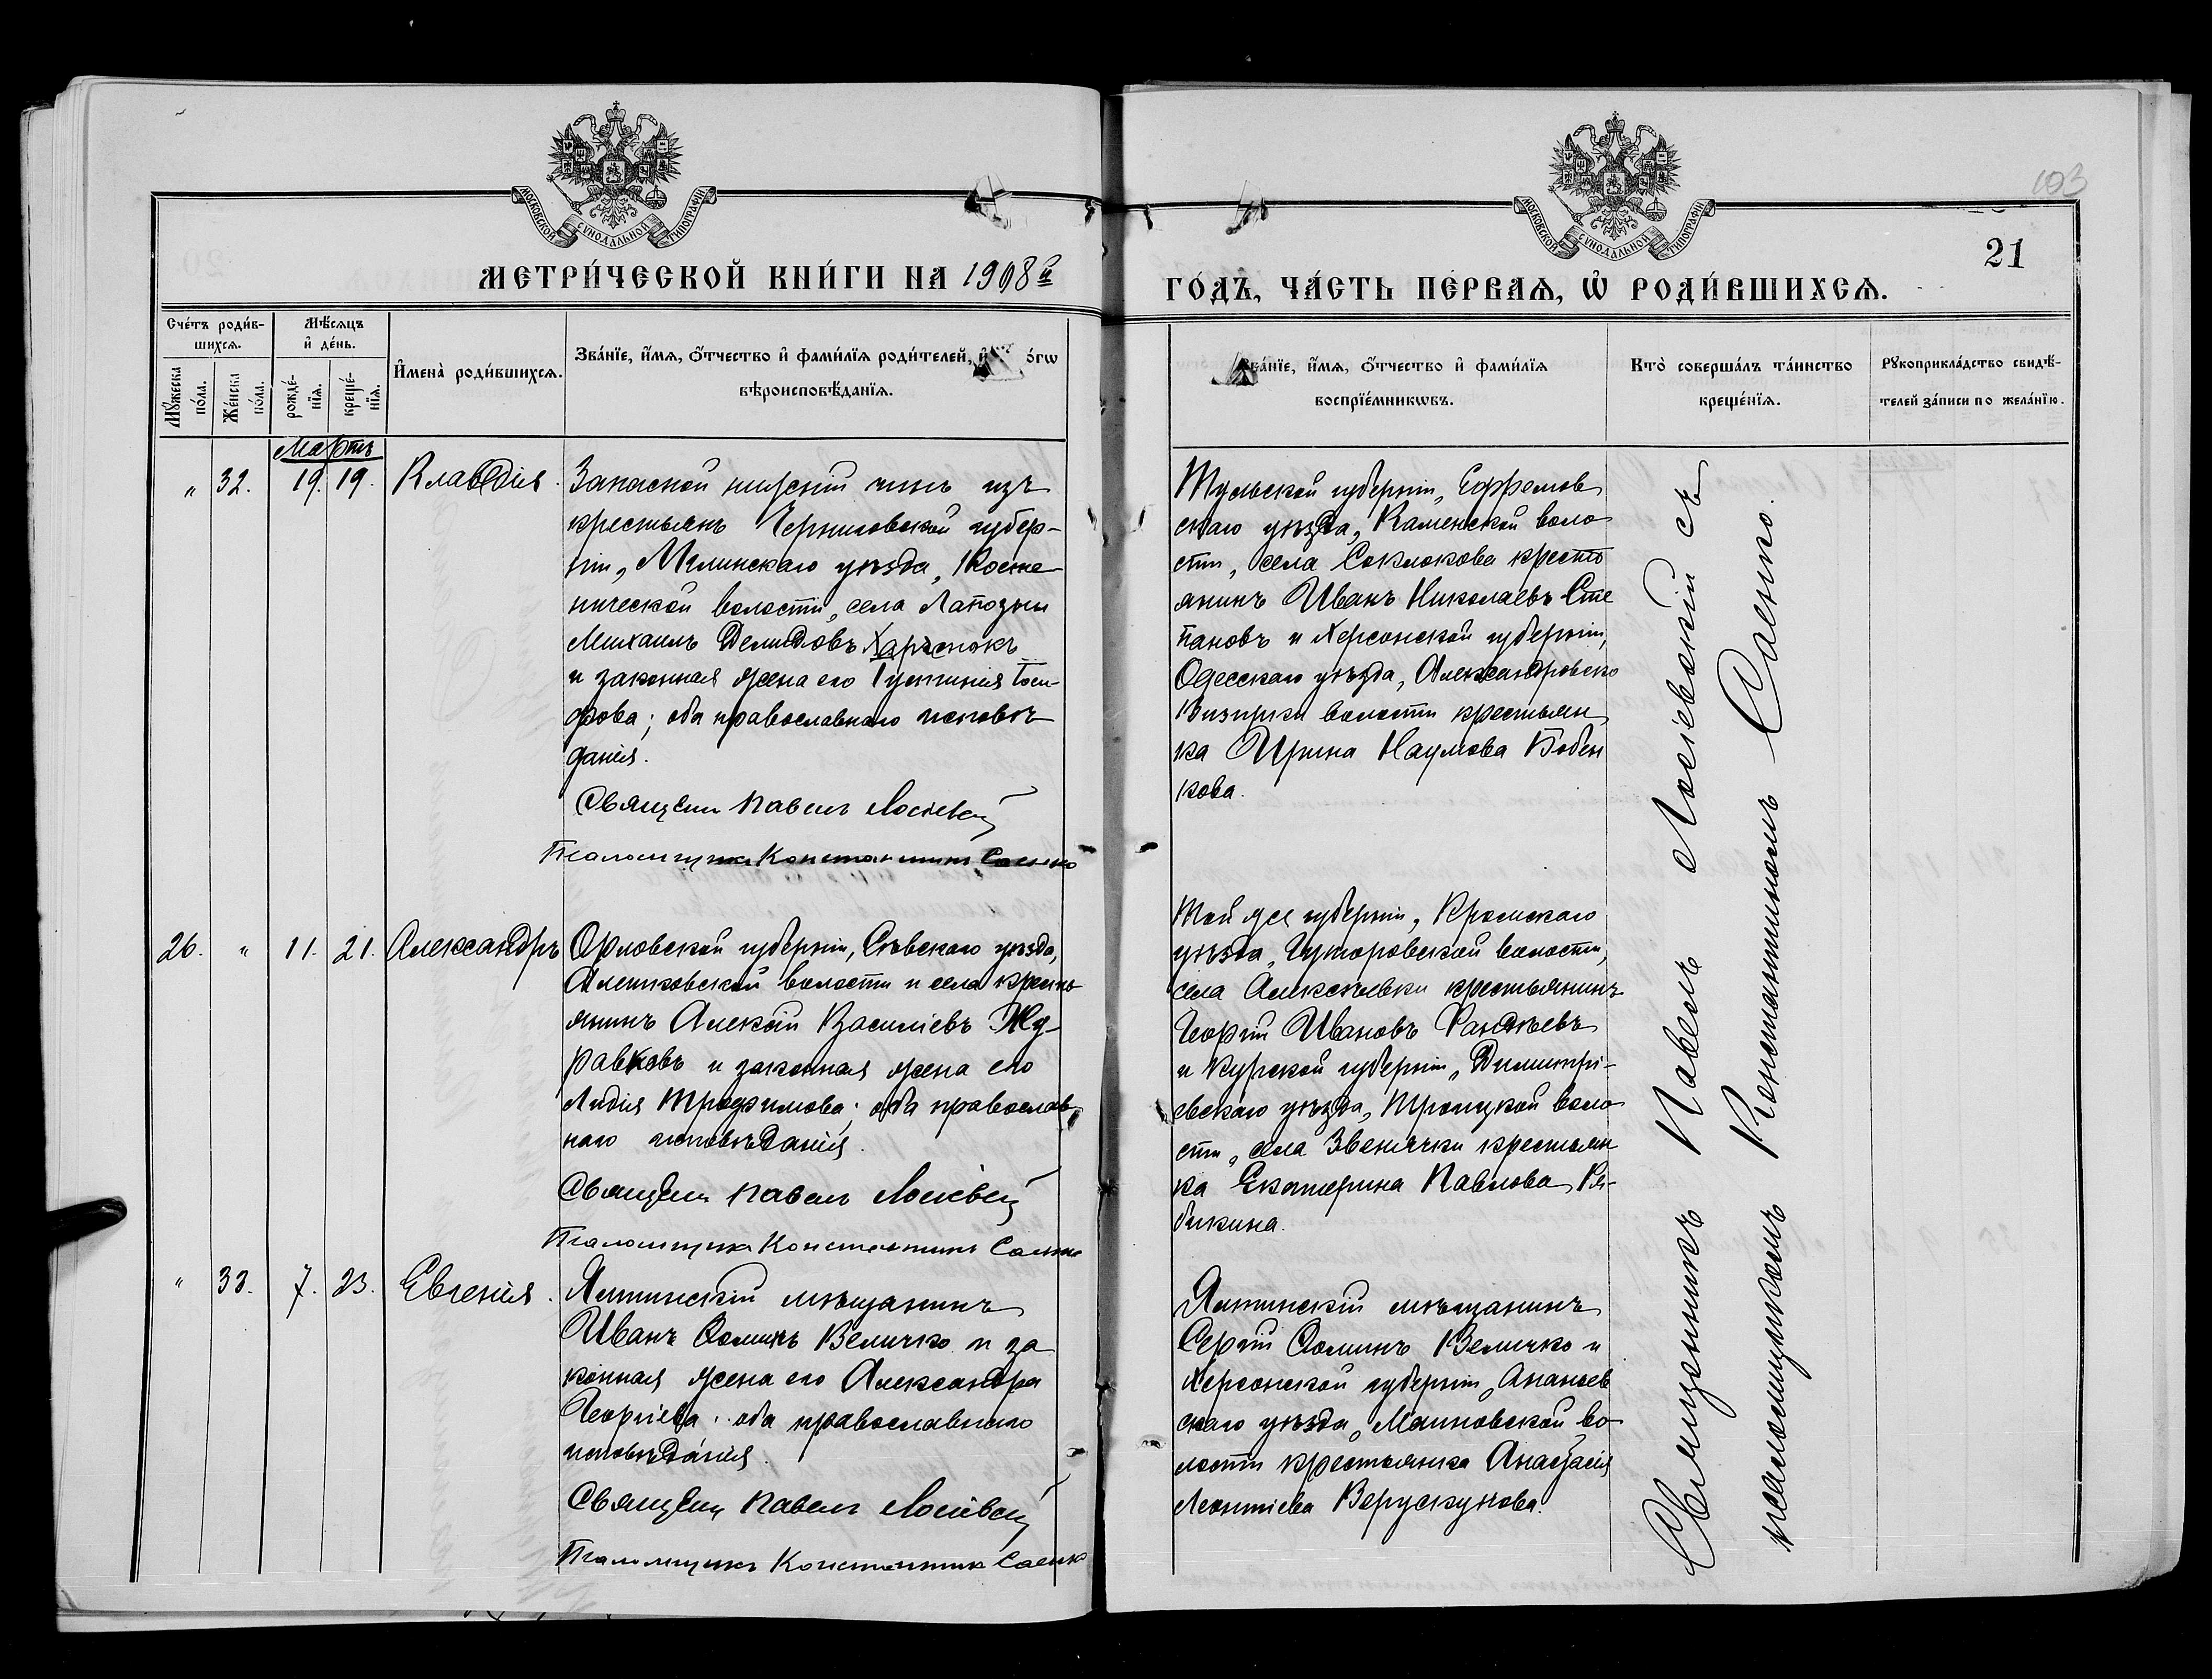 103
МОСКОВСКОЙ СѴНОДАЛЬНОЙ ТИПОГРАФІИ
МОСКОВСКОЙ СѴНОДАЛЬНОЙ ТИПОГРАФІИ
21
МЕТРИ́ЧЕСКОЙ КНИ́ГИ НА 1908 й
ГО́ДЪ, ЧА́СТЬ ПЕ́РВАѦ, Ѡ҆ РОДИ́ВШИХСѦ.
Сче́тъ роди́в-
шихсѧ.
Мꙋ́жеска по́ла.
Же́нска по́ла.
Мѣ́сѧцъ
и҆ де́нь.
рожде́-
нїѧ.
креще́-
нїѧ.
И҆мена̀ роди́вшихсѧ.
Зва́нїе, и҆́мѧ, ѻ҆́тчество и҆ фами́лїѧ роди́телей, и҆ о́гѡ
вѣроисповѣ́данїѧ.
Зва́нїе, и҆́мѧ, ѻ҆́тчество и҆ фами́лїѧ
воспрїе́мникѡвъ.
Кто̀ соверша́лъ та́инство
креще́нїѧ.
Рꙋкоприкла́дство свидѣ́-
телей за́писи по жела́нїю.
Мартъ
" 32. 19. 19. Клавдія.
Запасной нижній чинъ изъ
крестьянъ Черниговской губер-
ніи, Мглинскаго уѣзда, Косте-
нической волости, села Лапозны
Михаилъ Демидовъ
и законная жена его Іустинія Іоси-
фова; оба православнаго исповѣ-
данія.
Священн Павелъ Лосіевскій
Псаломщикъ Константинъ Саенко
Тульской губерніи, Ефремов
скаго уѣзда, Каменской воло
сти, села кресть
янинъ Иванъ Николаевъ Сте
пановъ и Херсонской губерніи,
Одесскаго уѣзда, Александровско
волости крестьян
ка Ирина Наумова Бобен
кова.
26. " 11. 21. Александръ
Орловской губерніи, Сѣвскаго уѣзда,
Алешковской волости и села кресть
янинъ Алексѣй Василіевъ Жу-
равковъ и законная жена его
Лидія Трофимова; оба православ
наго исповѣданія.
Священн Павелъ Лосіевскій
Псаломщикъ Константинъ Саенко
Той же губерніи, Кромскаго
уѣзда, Гуторовской волости,
села Алексѣевки крестьянинъ
Георгій Ивановъ Фандѣевъ
и Курской губерніи, Димитрі-
евскаго уѣзда, Троицкой воло
сти, села Звенячки крестьян
ка Екатерина Павлова Ря-
бикина.
" 33. 7. 23. Евгенія.
Ялтинскій мѣщанинъ
Иванъ Ѳоминъ Величко и за
конная жена его Александра
Георгіева; оба православнаго
исповѣданія.
Священн Павелъ Лосіевскій
Псаломщикъ Константинъ Саенко
Ялтинскій мѣщанинъ
Сергій Ѳоминъ Величко и
Херсонской губерніи, Ананьев
скаго уѣзда, Маиновской во
лости крестьянка Анастасія
Леонтіева Верускунова.
Священникъ Павелъ Лосіевскій съ
псаломщикомъ Константиномъ Саенко.